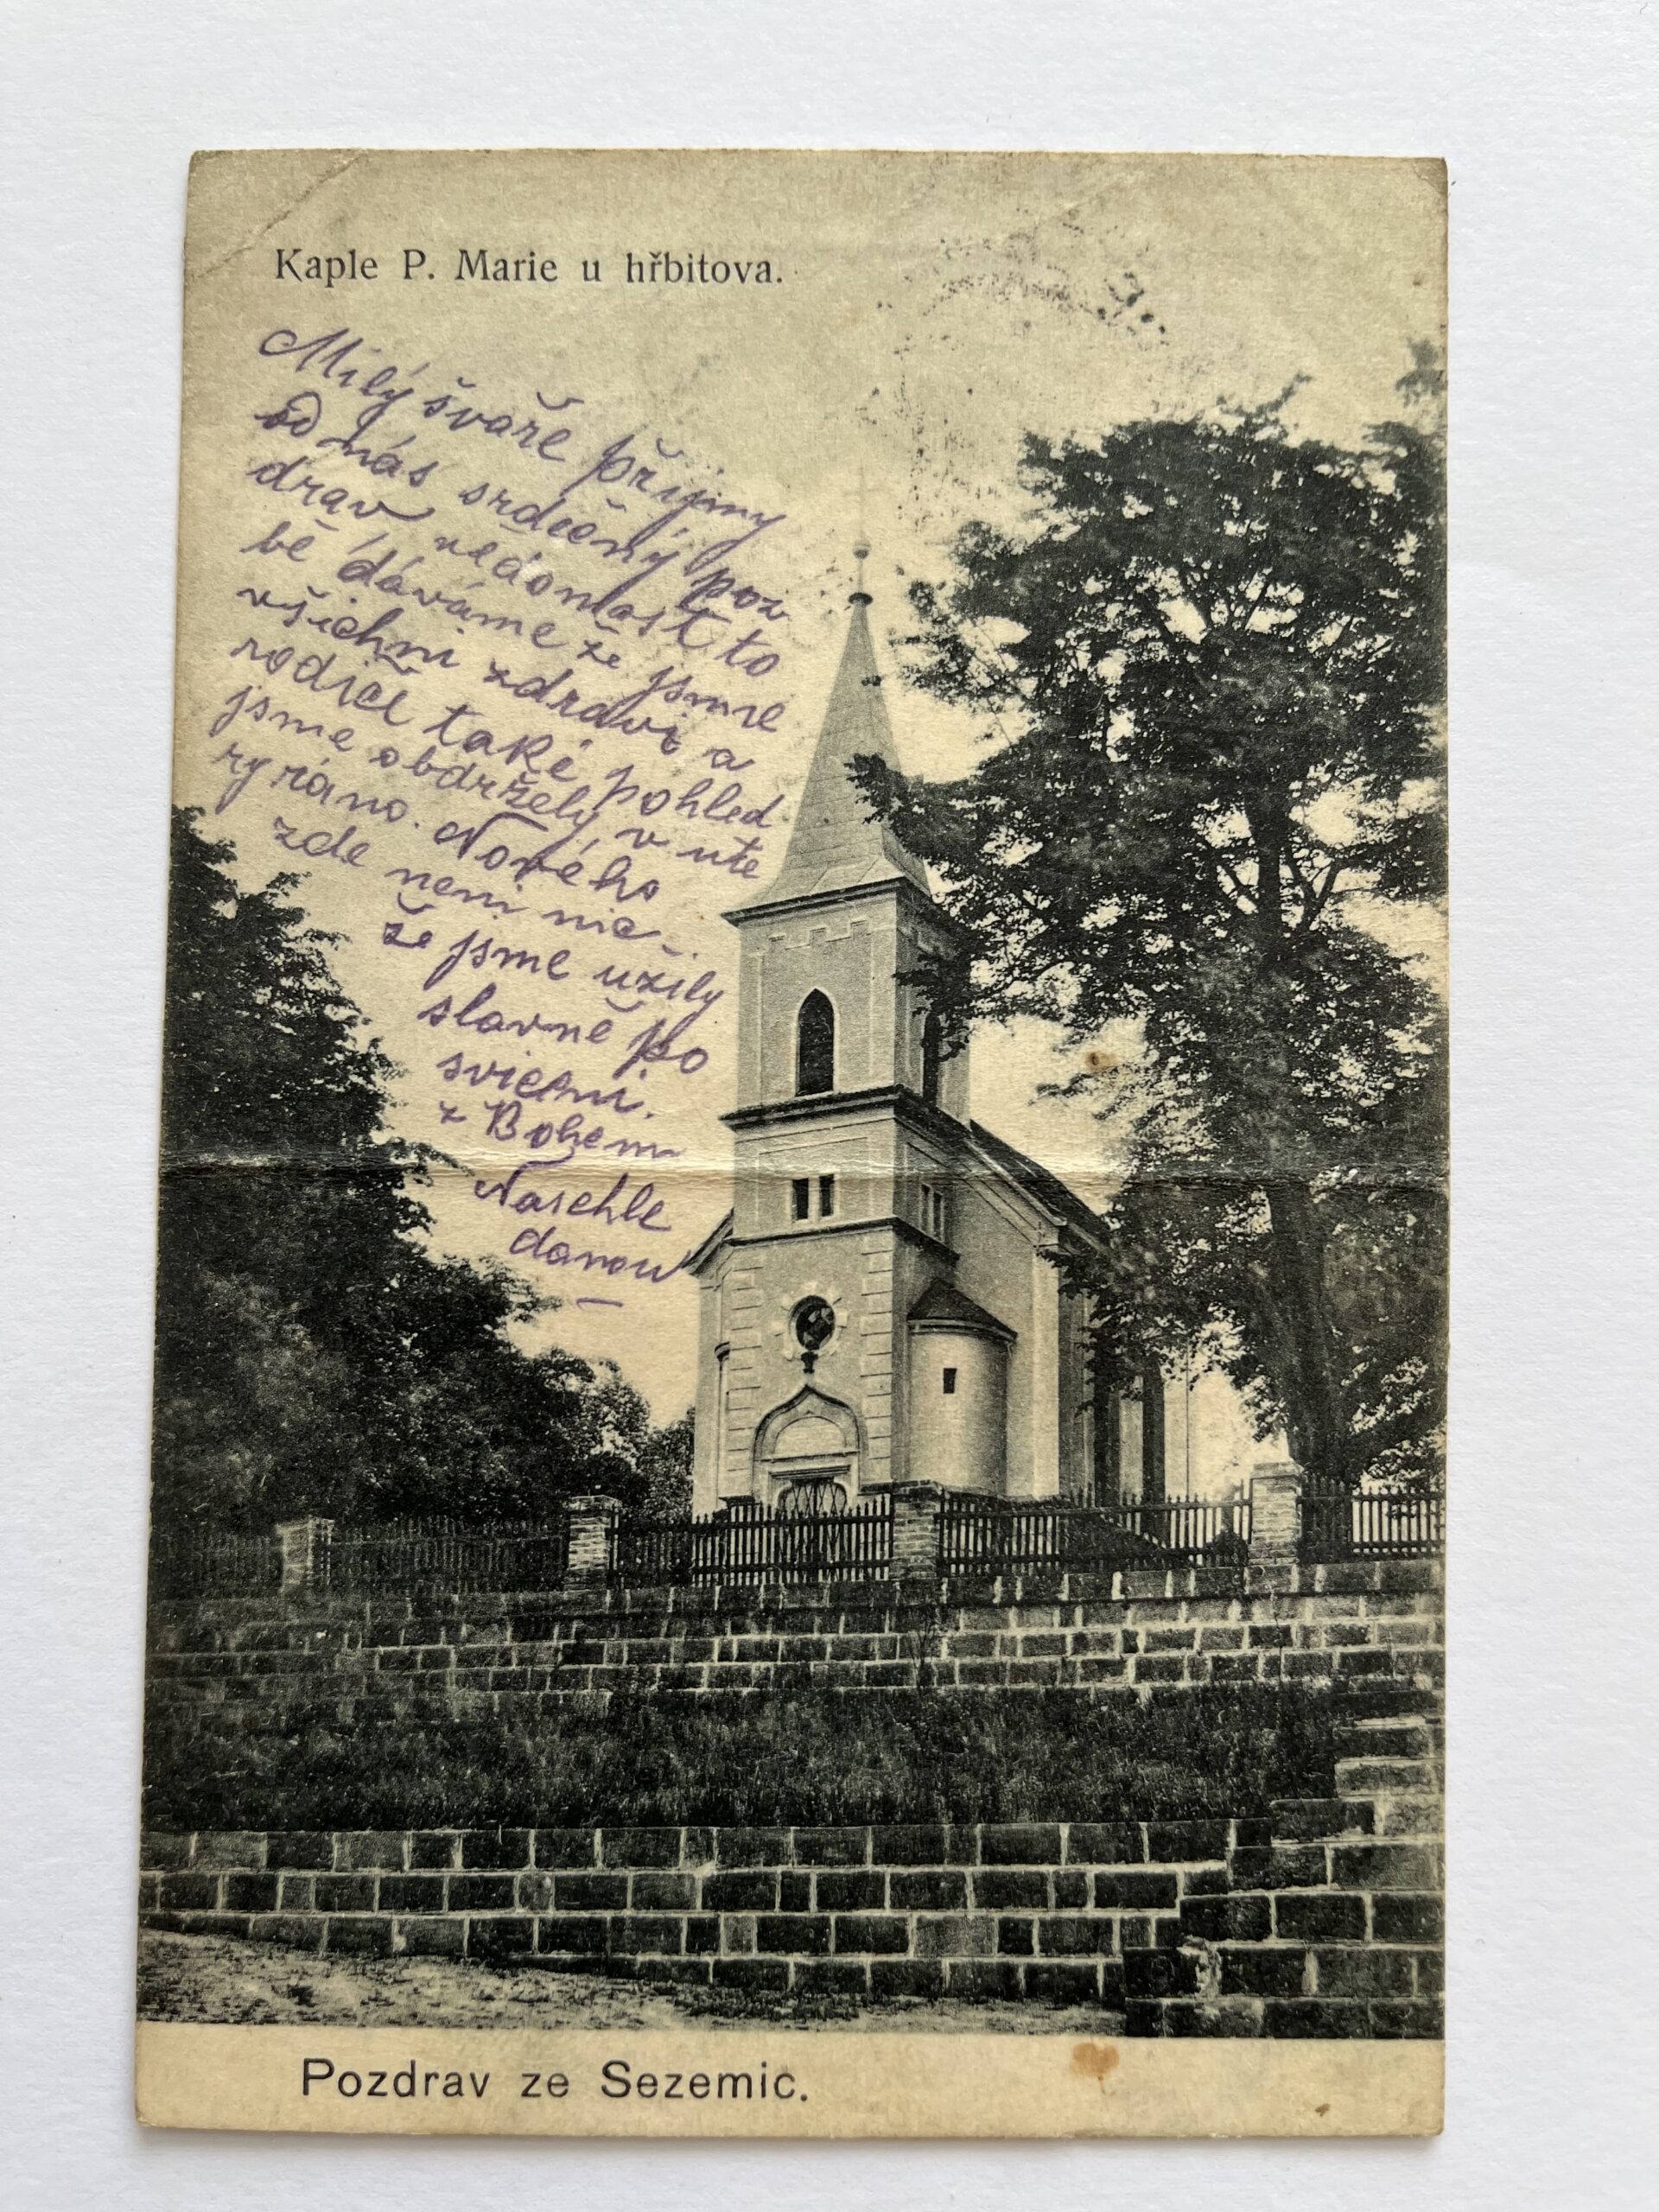 Kaple P. Marie u hřbitova.
Milý švaře přijmy
od nás srdečný poz
drav vedomost to
bě dáváme že jsme
všichni zdravi a
rodiče také pohled
jsme obdržely v ute
ry ráno. Nového
zde neni nic
že jsme užily
slavně po
svicení.
z Bohem
Naschle
danou
Pozdrav ze Sezemic.